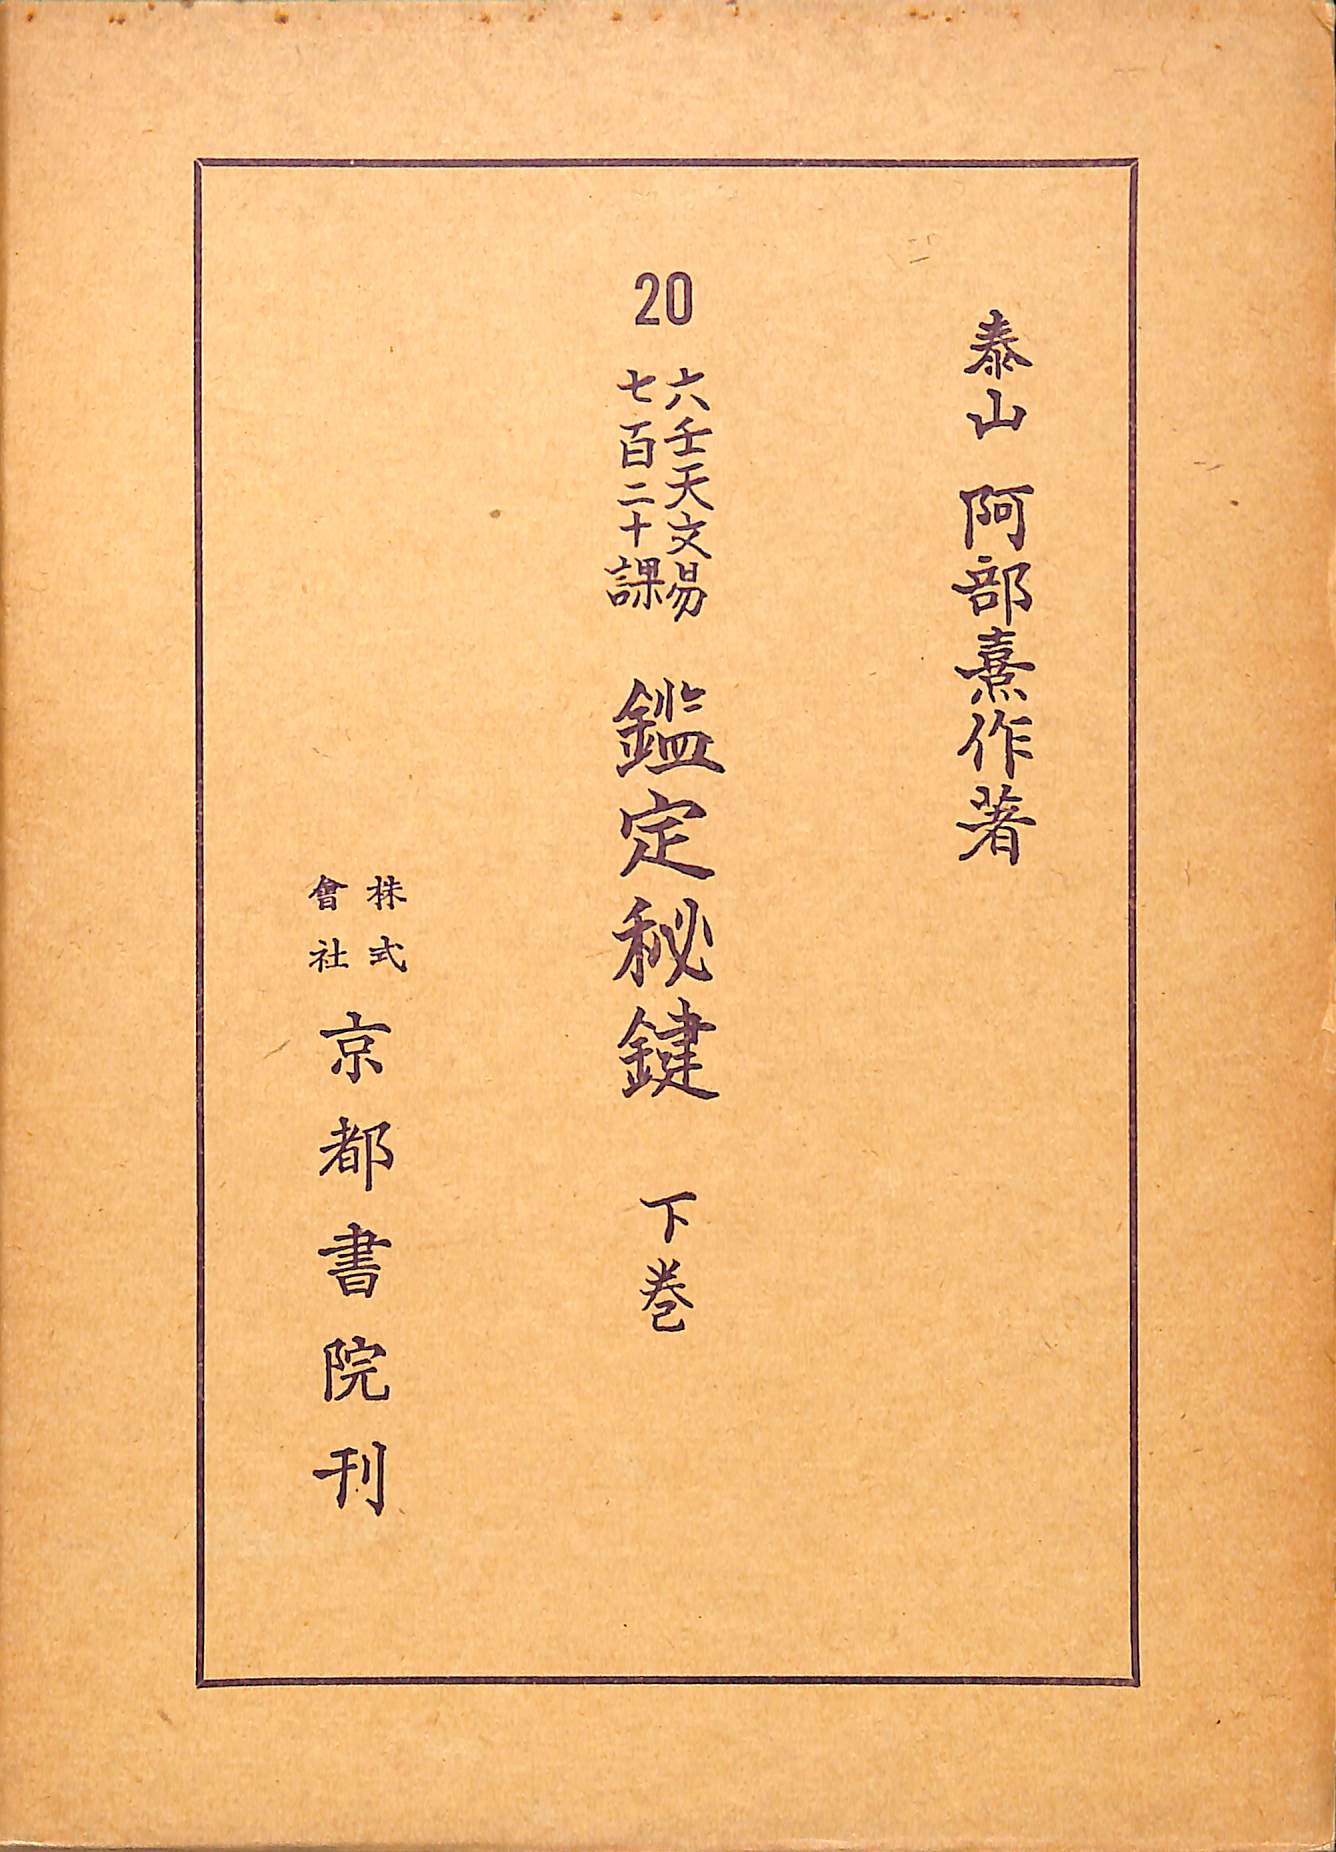 泰山 阿部熹作著
20
六壬天文易
七百二十課
鑑定秘鍵 下巻
株式
會社
京都書院刊